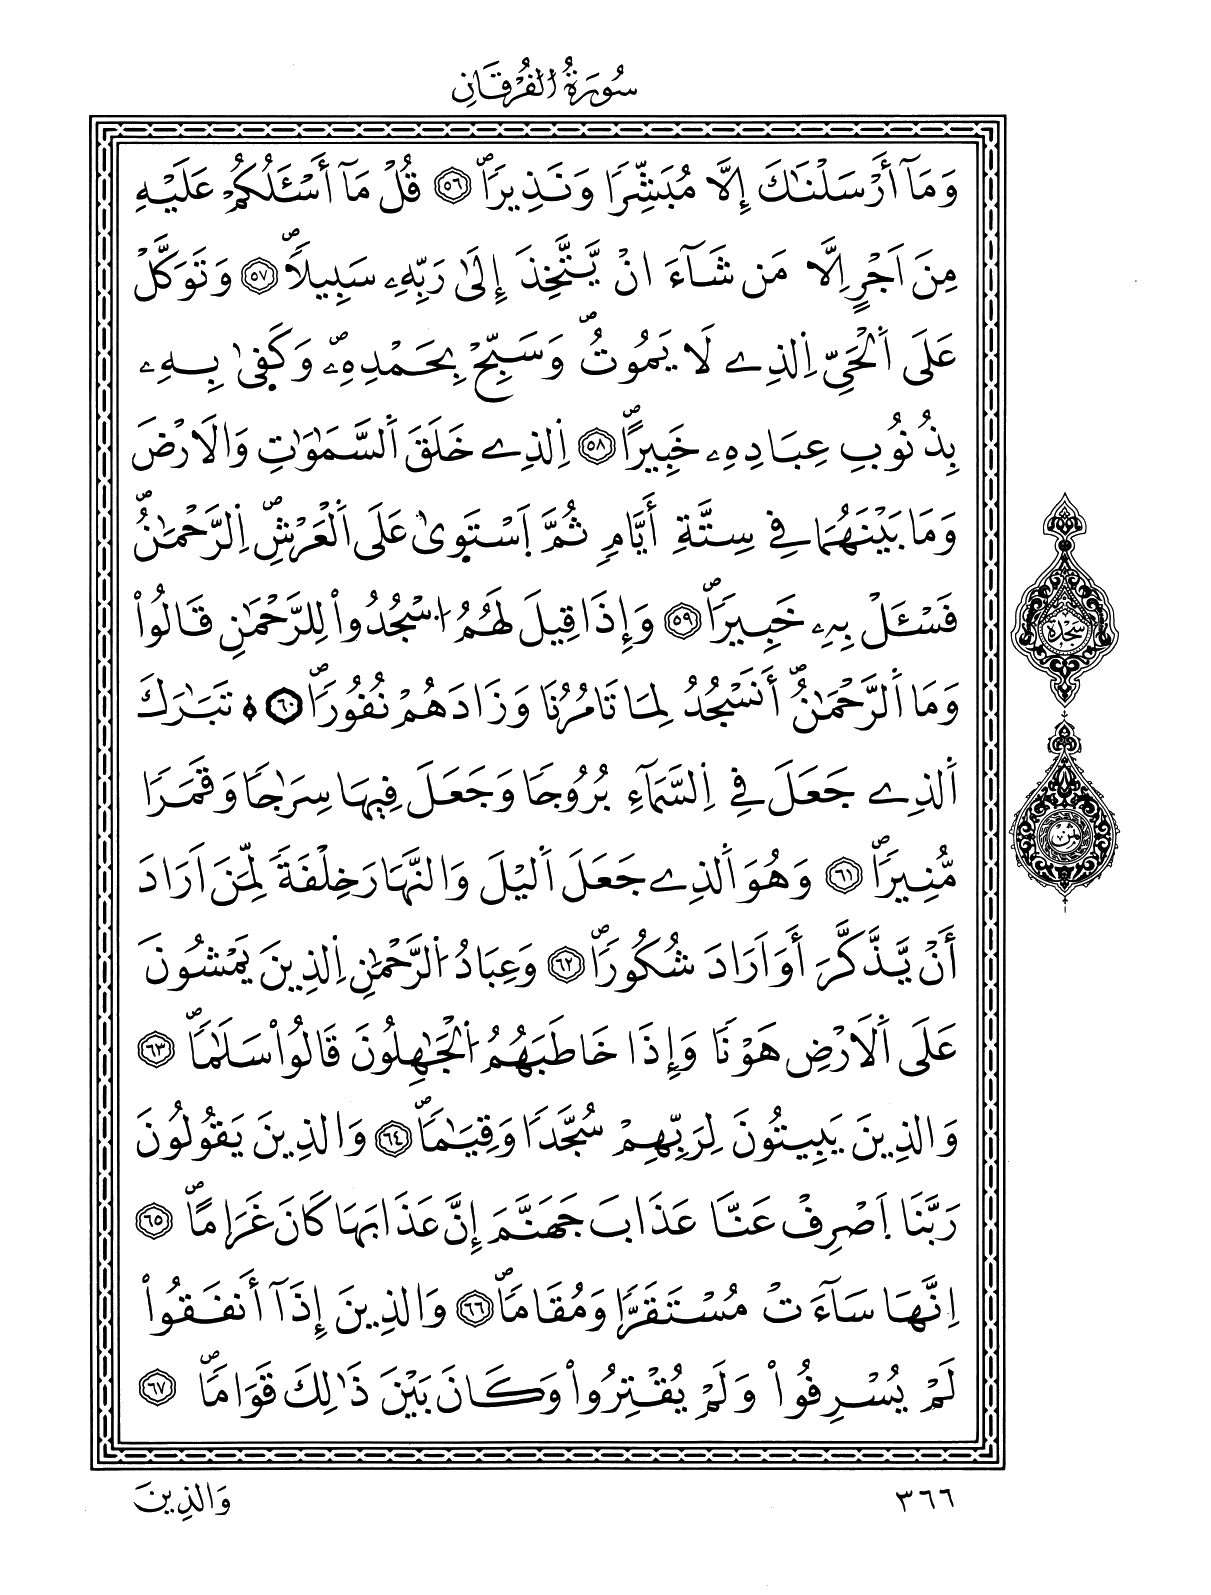 سُورَةُ الْفُرْقَانِ
وَمَآ أَرْسَلْنَٰكَ إِلَّا مُبَشِّرًا وَنَذِيرًاۖ ٥٦ قُلْ مَآ أَسْـَٔلُكُمْ عَلَيْهِ
مِنَ اَجْرٍ اِلَّا مَن شَآءَ انْ يَّتَّخِذَ إِلَىٰ رَبِّهِۦ سَبِيلًاۖ ٥٧ وَتَوَكَّلْ
عَلَى اَ۬لْحَيِّ اِ۬لذِے لَا يَمُوتُۖ وَسَبِّحْ بِحَمْدِهِۦۖ وَكَف۪ىٰ بِهِۦ
بِذُنُوبِ عِبَادِهِۦ خَبِيرًاۖ ٥٨ اِ۬لذِے خَلَقَ اَ۬لسَّمَٰوَٰتِ وَالَارْضَ
وَمَا بَيْنَهُمَا فِے سِتَّةِ أَيَّامٖ ثُمَّ اَ۪سْتَو۪ىٰ عَلَى اَ۬لْعَرْشِۖ اِ۬لرَّحْمَٰنُۖ
فَسْـَٔلْ بِهِۦ خَبِيرًاۖ ٥٩ وَإِذَا قِيلَ لَهُمُ اُ۟سْجُدُواْ لِلرَّحْمَٰنِ قَالُواْ
وَمَا اَ۬لرَّحْمَٰنُۖ أَنَسْجُدُ لِمَا تَامُرُنَا وَزَادَهُمْ نُفُورًاۖ ٦٠ تَبَٰرَكَ
اَ۬لذِے جَعَلَ فِے اِ۬لسَّمَآءِ بُرُوجًا وَجَعَلَ فِيهَا سِرَٰجًا وَقَمَرًا
مُّنِيرًاۖ ٦١ وَهُوَ اَ۬لذِے جَعَلَ اَ۬ليْلَ وَالنَّهَارَ خِلْفَةً لِّمَنَ اَرَادَ
أَنْ يَّذَّكَّرَ أَوَ اَرَادَ شُكُورًاۖ ٦٢ وَعِبَادُ اُ۬لرَّحْمَٰنِ اِ۬لذِينَ يَمْشُونَ
عَلَى اَ۬لَارْضِ هَوْنًا وَإِذَا خَاطَبَهُمُ اُ۬لْجَٰهِلُونَ قَالُواْ سَلَٰمًاۖ ٦٣
وَالذِينَ يَبِيتُونَ لِرَبِّهِمْ سُجَّدًا وَقِيَٰمًاۖ ٦٤ وَالذِينَ يَقُولُونَ
رَبَّنَا اَ۪صْرِفْ عَنَّا عَذَابَ جَهَنَّمَ إِنَّ عَذَابَهَا كَانَ غَرَامًاۖ ٦٥
اِنَّهَا سَآءَتْ مُسْتَقَرًّا وَمُقَامًاۖ ٦٦ وَالذِينَ إِذَآ أَنفَقُواْ
لَمْ يُسْرِفُواْ وَلَمْ يُقْتِرُواْ وَكَانَ بَيْنَ ذَٰلِكَ قَوَامًاۖ ٦٧
سجدة
ثمن
٣٦٦
وَالذِينَ